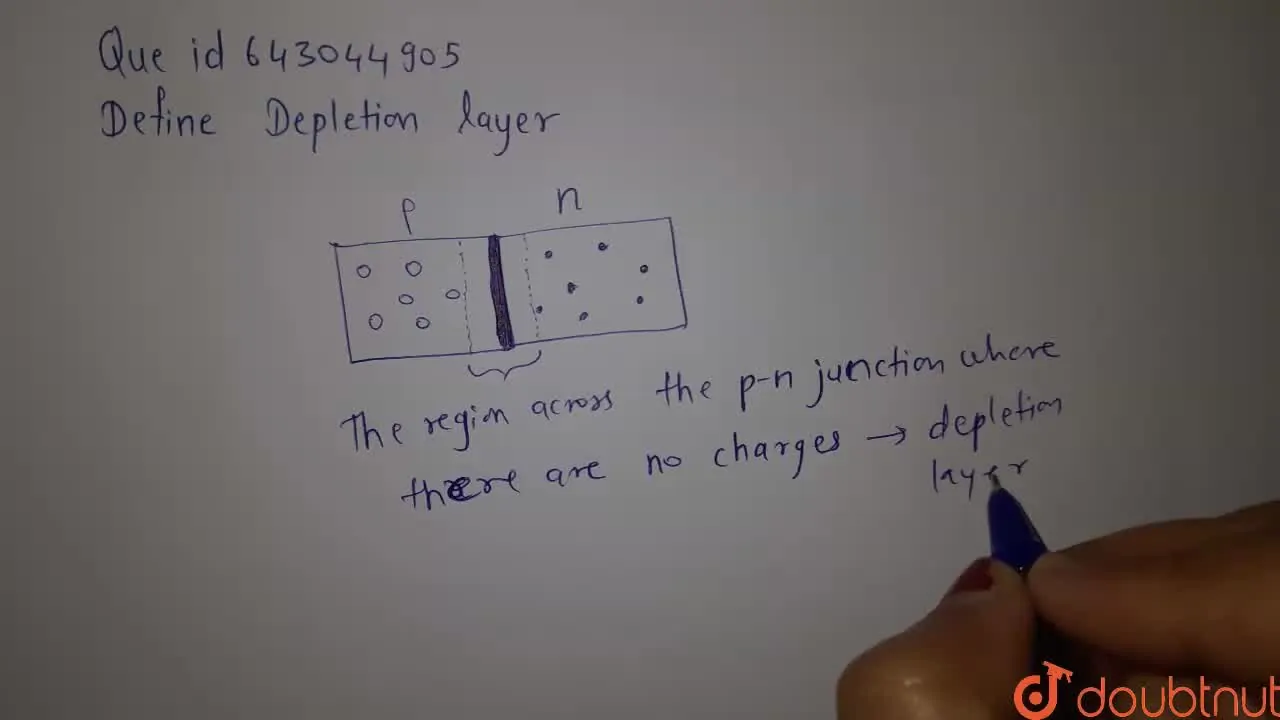 Que id 643044905
Define Depletion layer
P n
The region across the p-n junction where
there are no charges → depletion
layer
doubtnut